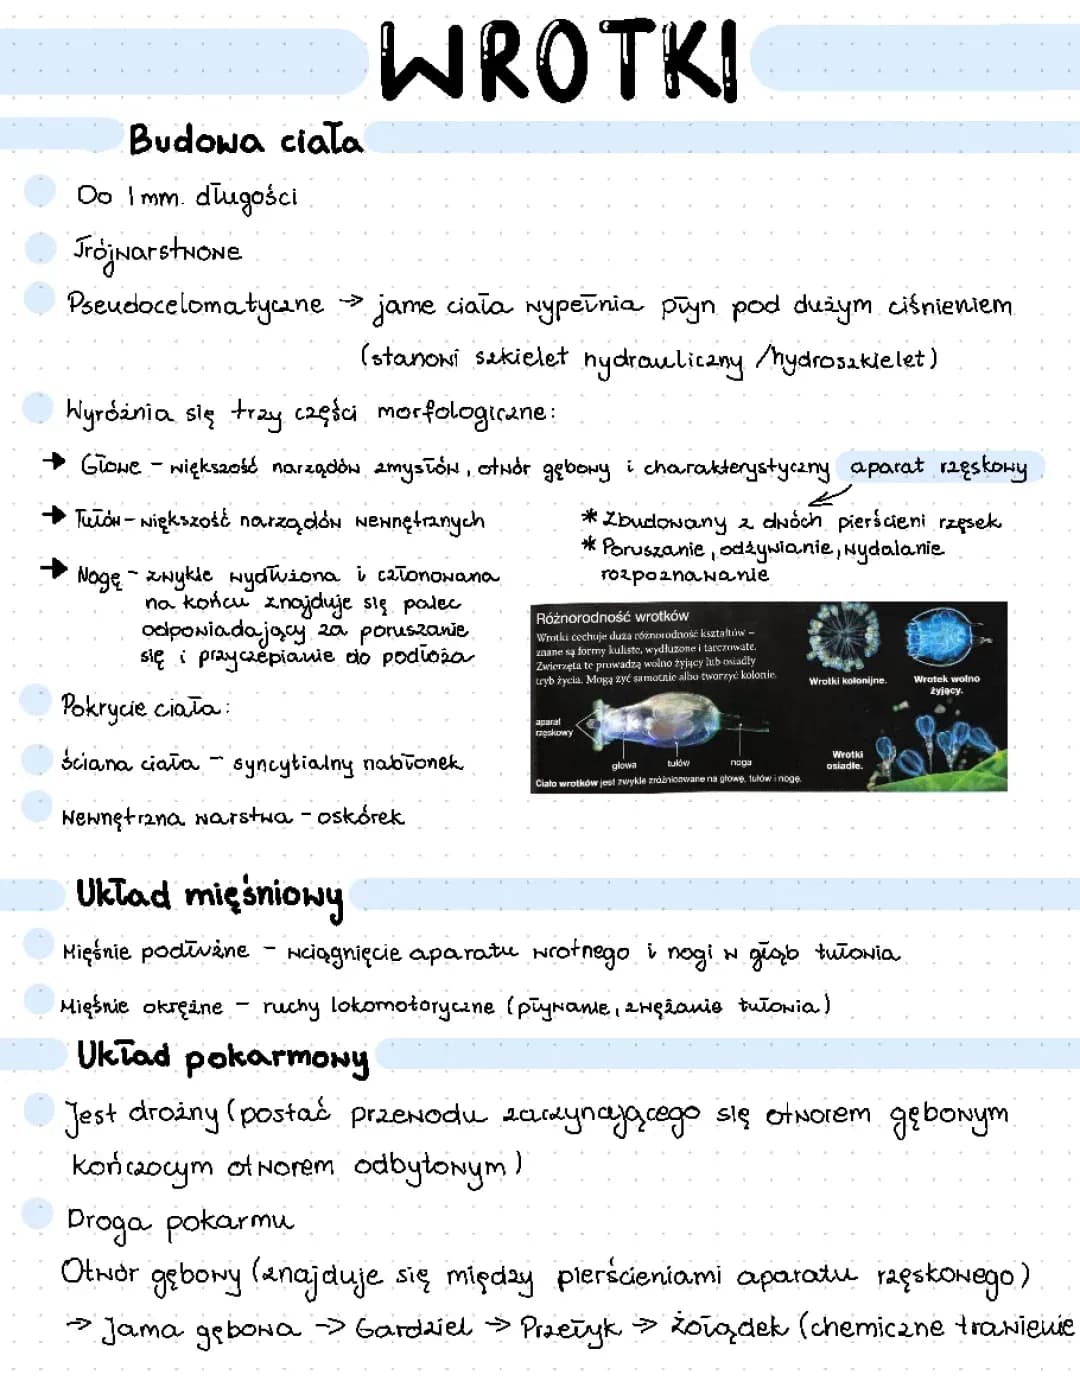 WROTKI
Budowa ciała
Do 1mm. długości
Trójwarstwowe
Pseudocelomatyczne → jame ciała wypełnia płyn pod dużym ciśnieniem
(stanowi szkielet hydrauliczny /hydroszkielet)
Wyróżnia się trzy części morfologiczne:
→ Głowe - większość narządów zmysłów, otwór gębowy i charakterystyczny aparat rzęskowy
→ Tułów - większość narządów wewnętrznych
* Zbudowany z dwóch pierścieni rzęsek
* Poruszanie, odżywianie, wydalanie
rozpoznawanie
→ Nogę - zwykle wydłużona i członowana
na końcu znajduje się palec
odpowiadający za poruszanie
się i przyczepianie do podłoża
Różnorodność wrotków
Wrotki cechuje duża różnorodność kształtów –
znane są formy kuliste, wydłużone i tarczowate.
Zwierzęta te prowadzą wolno żyjący lub osiadły
tryb życia. Mogą żyć samotnie albo tworzyć kolonie.
Wrotki kolonijne.
Wrotek wolno
żyjący.
aparat
rzęskowy
głowa
tułów
noga
Wrotki
osiadłe.
Ciało wrotków jest zwykle zróżnicowane na głowę, tułów i nogę.
Pokrycie ciała:
ściana ciała - syncytialny nabłonek
Wewnętrzna warstwa - oskórek
Układ mięśniowy
Mięśnie podłużne - wciągnięcie aparatu wrotnego i nogi w głąb tułowia
Mięśnie okrężne - ruchy lokomotoryczne (pływanie, zwężanie tułowia)
Układ pokarmowy
Jest drożny (postać przewodu zaczynającego się otworem gębowym
kończocym otworem odbytowym)
Droga pokarmu
Otwór gębowy (znajduje się między pierścieniami aparatu rzęskowego)
→ Jama gębowa → Gardziel → Przełyk → żołądek (chemiczne trawienie